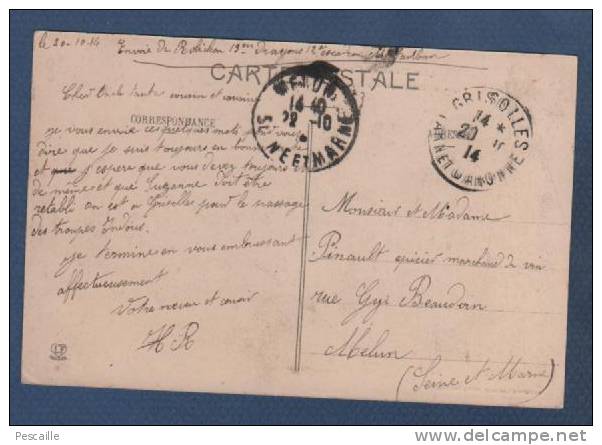 le 20-10-14 Envoie de Robichon 19me Dragons 12e escadron Montauban
CARTE POSTALE
Cher Oncle tante cousin et cousine
CORRESPONDANCE
je vous envoie ces quelques mots pour vous
dire que je suis toujours en bonne santé
et que j'espere que vous devez toujours
de meme et que Suzanne doit être
retabli on est a Grisolles pour le passage
des troupes Indous.
je termine en vous embrassant
affectueusement
Votre neveu et cousin
H R
MELUN
14-10
22-10
SEINE ET MARNE
GRISOLLES
14
20
14
TARN-ET-GARONNE
Monsieur et Madame
Pinault epicier marchand de vin
rue Gye Beaudoin
Melun
(Seine et Marne)
LF
Pescaille
www.delcampe.net